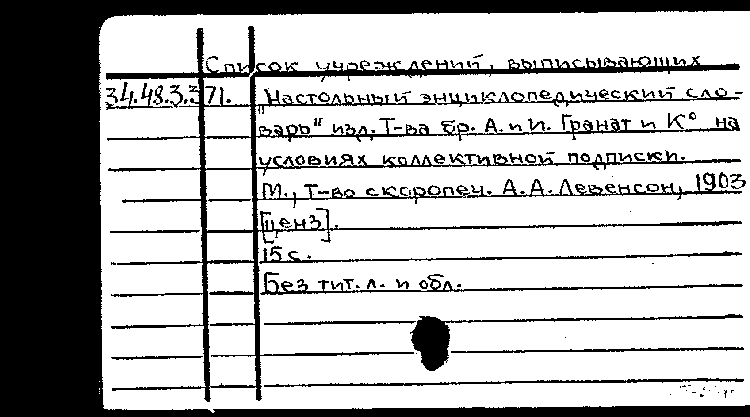 Список учреждений, выписывающих
34.48.3.371. „Настольный энциклопедический сло-
варь" изд. Т-ва бр. А. и И. Гранат и К° на
условиях коллективной подписки.
М., Т-во скоропеч. А.А. Левенсон, 1903
[ценз].
15 с.
Без тит. л. и обл.